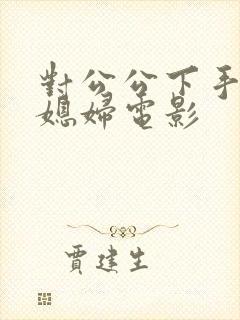 對公公下手
媳婦電影
賈建生